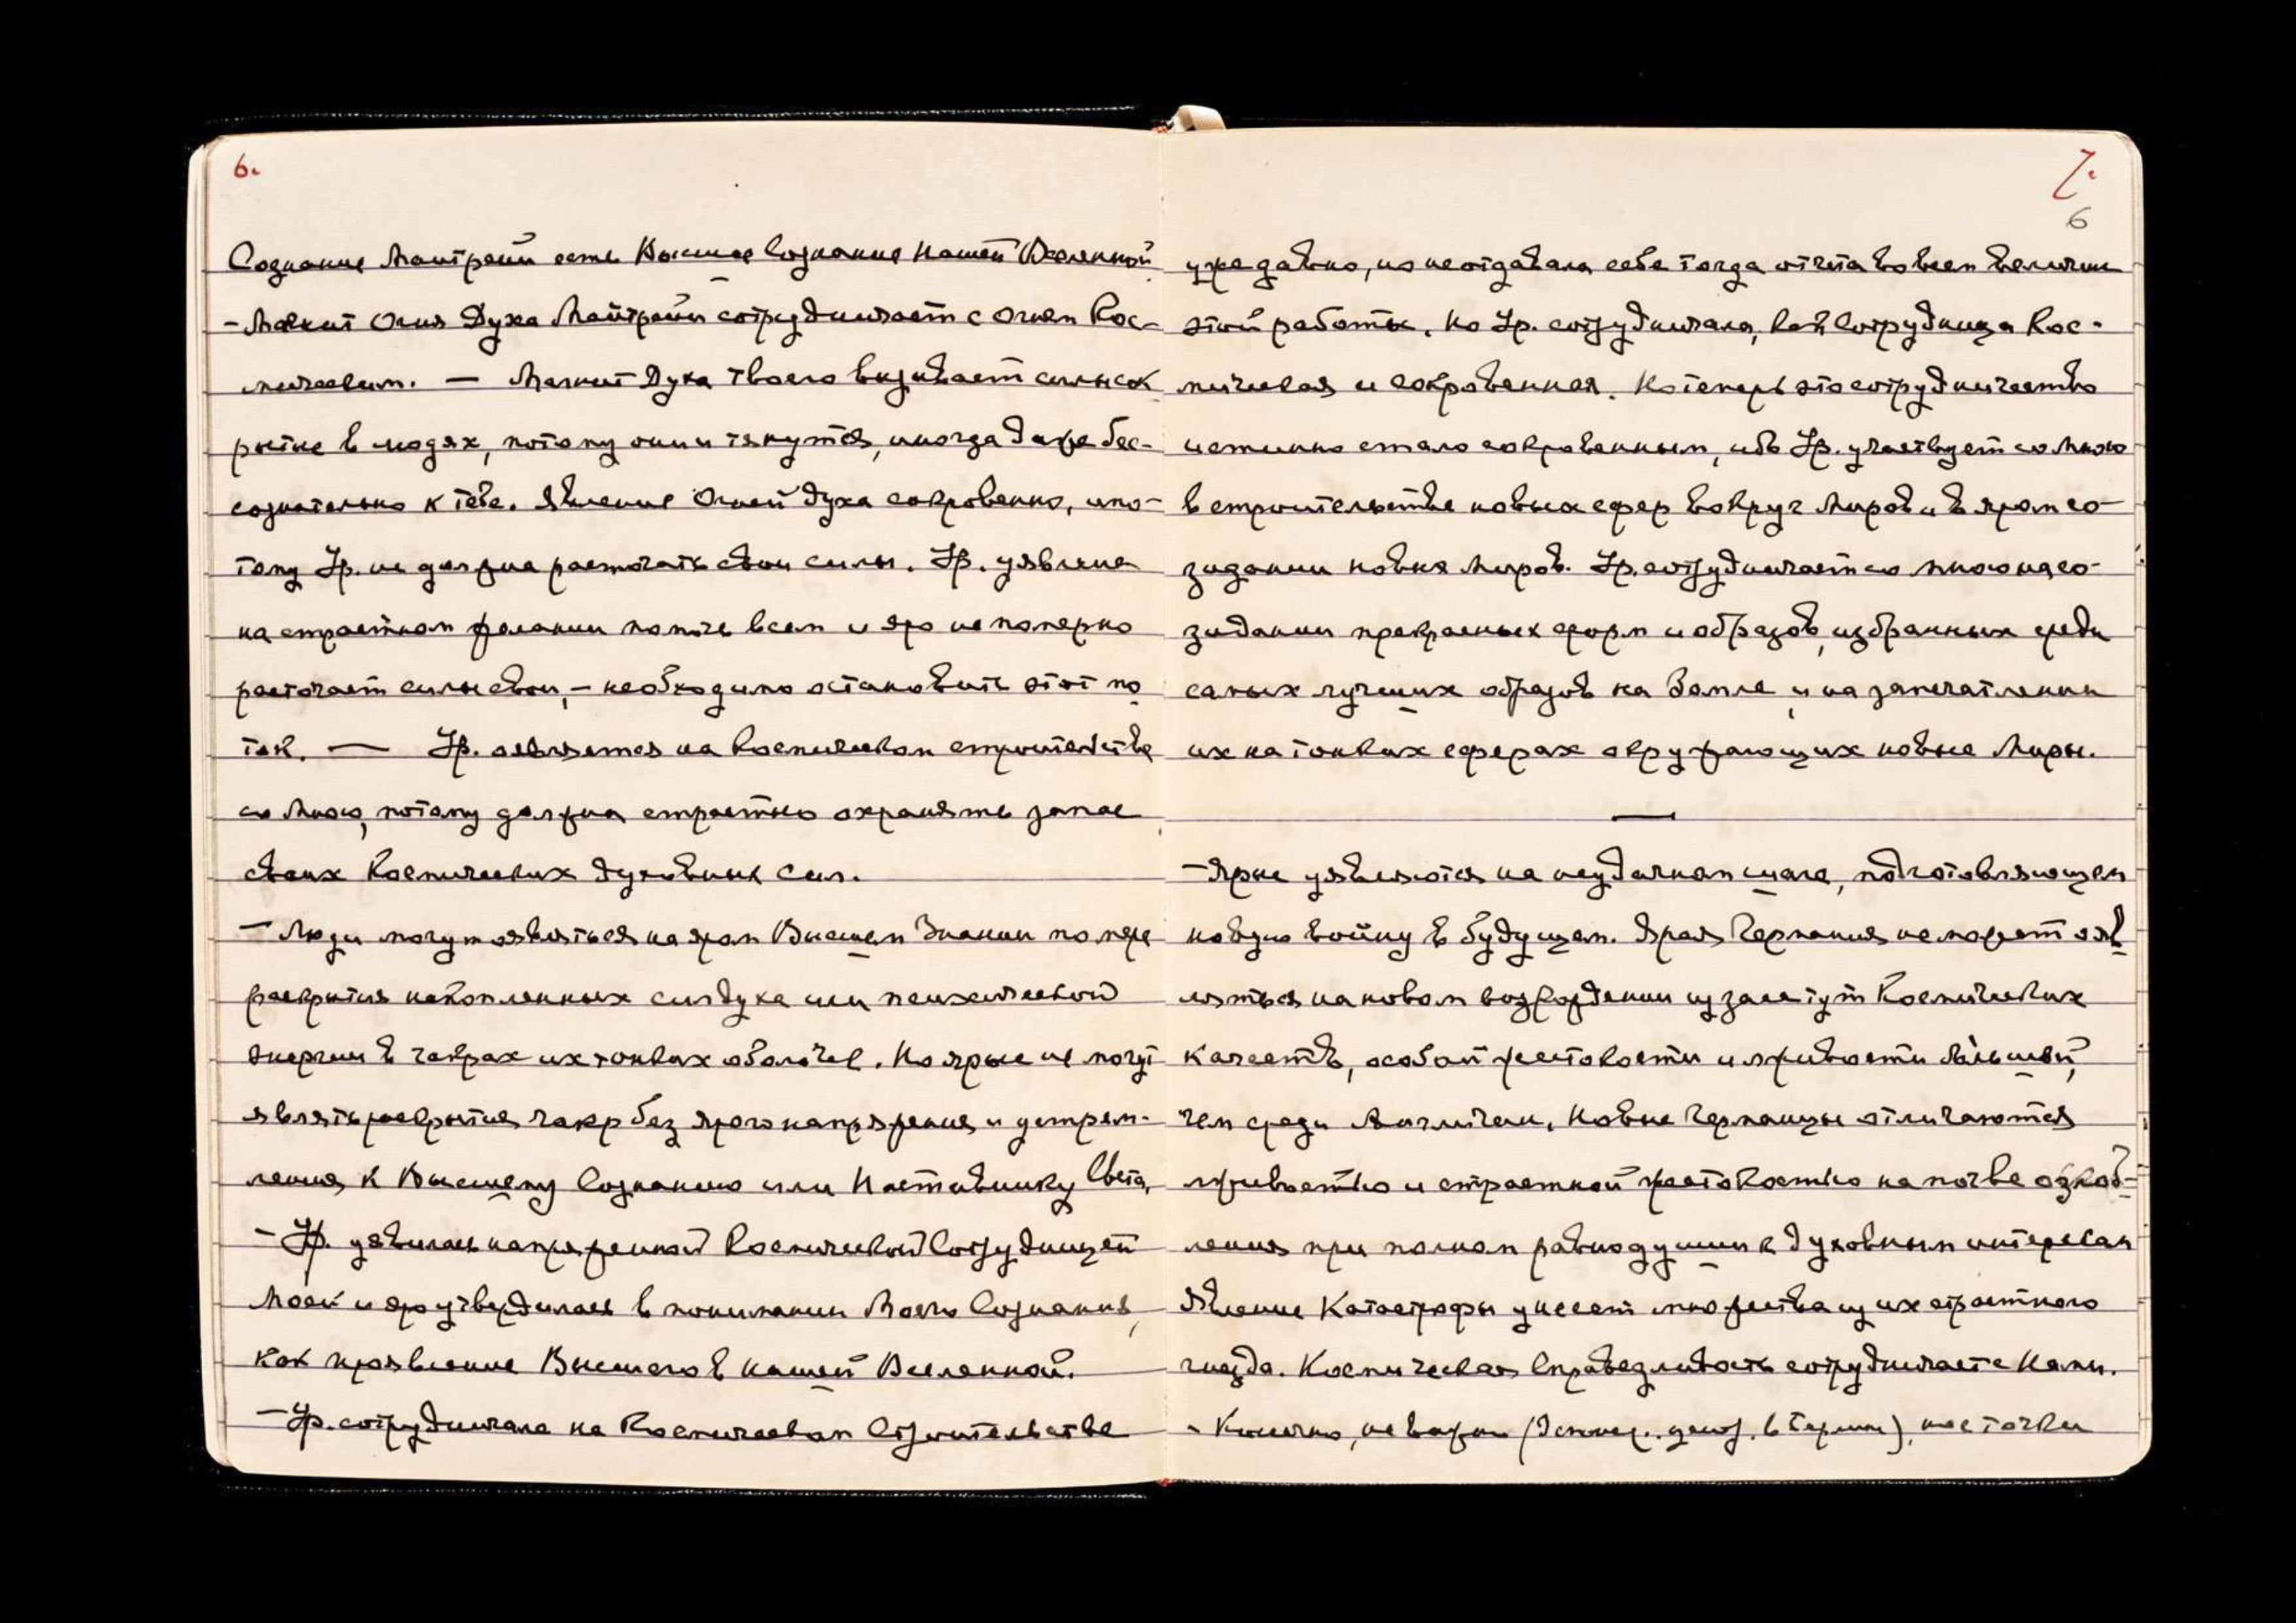 6.
Сознание Майтрейи есть Высшее Сознание Нашей Вселенной
– Магнит Огня Духа Майтрейи сотрудничает с Огнем Кос-
мическим. — Магнит Духа твоего вызывает сильное
в людях, потому они и тянутся, иногда даже бес-
сознательно к тебе. Явление Огней Духа сокровенно, и по-
тому Ур. не должна расточать свои силы. Ур. уявлена
на страстном желании помочь всем и яро непомерно
расточает силы свои, – необходимо остановить этот по
ток. — Ур. оявляется на Космическом строительстве
со Мною, потому должна страстно охранять запас
своих Космических духовных сил.
– Люди могут оявляться на яром Высшем Знании по мере
раскрытия накопленных сил духа или психической
энергии в чакрах их тонких оболочек. Но ярые не могут
являть раскрытия чакр без ярого напряжения и устрем-
ления к Высшему Сознанию или Наставнику Света,
– Ур. уявилась напряженной Космической Сотрудницей
Моей и яро утвердилась в понимании Моего Сознания,
как проявление Высшего в нашей Вселенной.
– Ур. сотрудничала на Космическом Строительстве
7.
6
уже давно, но не отдавала себе тогда отчета во всем величии
этой работы. Но Ур. сотрудничала, как Сотрудница Кос-
мическая и сокровенная. Но теперь это сотрудничество
истинно стало сокровенным, ибо Ур. участвует со Мною
в строительстве новых сфер вокруг Миров и в яром со-
зидании новых Миров. Ур. сотрудничает со Мною на со-
зидании прекрасных форм и образов, избранных среди
самых лучших образов на Земле, и на запечатлении
их на тонких сферах окружающих новые Миры.
—
– Ярые уявляются на неудачном шаге, подготовляющем
новую войну в будущем. Ярая Германия не может ояв
ляться на новом возрождении из за отсутст Космических
качеств, особой жестокости и лживости большей,
чем среди Англичан. Новые Германцы отличаются
лживостью и страстной жестокостью на почве озлоб-
ления при полном равнодушии к духовным интересам
Явление Катастрофы унесет множества из их страстного
гнезда. Космическая Справедливость сотрудничает с Нами.
– Конечно, не важны в Берлине), но с точки